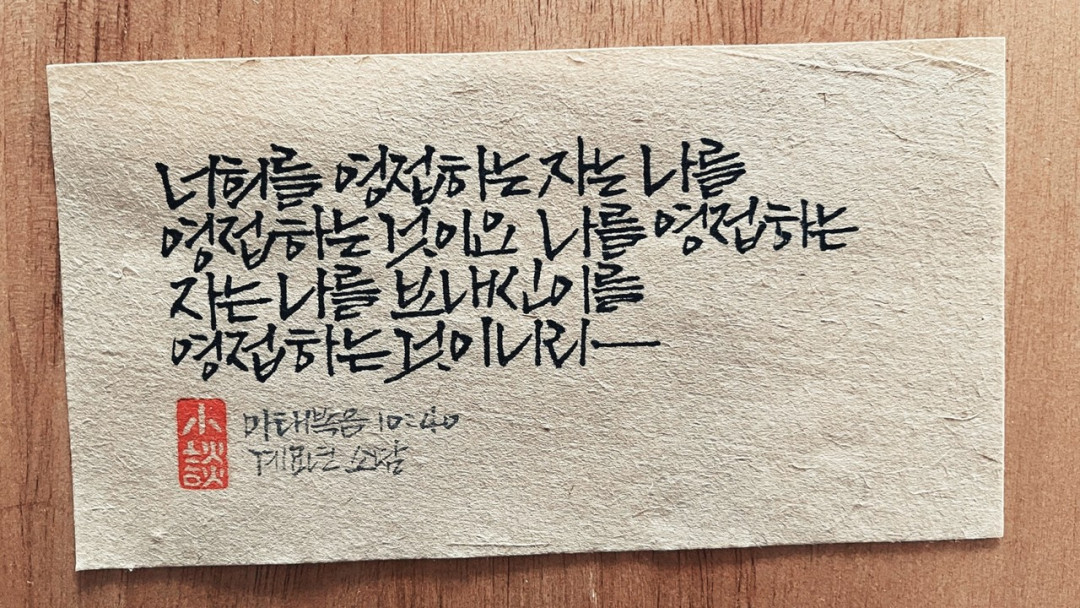 너희를 영접하는 자는 나를
영접하는 것이요 나를 영접하는
자는 나를 보내신 이를
영접하는 것이니라
小談
마태복음 10:40
계묘년 소담